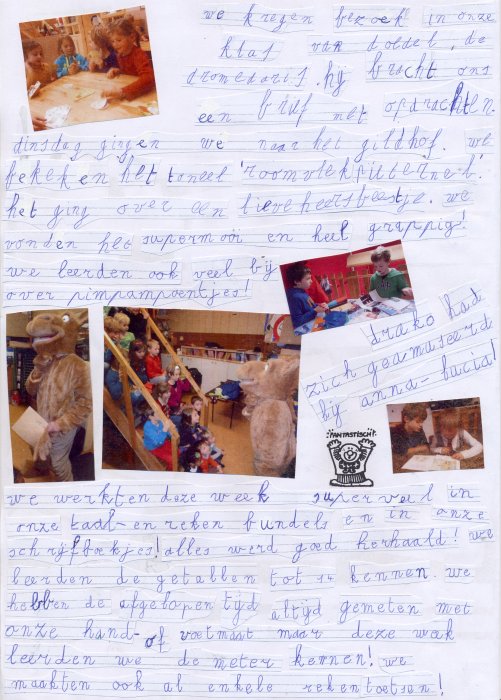 we kregen bezoek in onze
klas van doedel, de
dromedaris. hij bracht ons
een brief met opdrachten.
dinsdag gingen we naar het gildhof. we
bekeken het toneel 'roomvlekpitterneel'.
het ging over een lieveheersbeestje. we
vonden het supermooi en heel grappig!
we leerden ook veel bij
over pimpampoentjes!
drako had
zich geamuseerd
bij anna-lucia!
FANTASTISCH!
we werkten deze week superveel in
onze taal- en reken bundels en in onze
schrijfboekjes! alles werd goed herhaald! we
leerden de getallen tot 14 kennen. we
hebben de afgelopen tijd altijd gemeten met
onze hand- of voetmaat maar deze week
leerden we de meter kennen! we
maakten ook al enkele rekentoetsen!